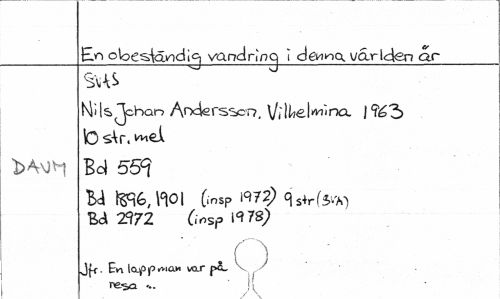 En obeständig vandring i denna världen är
SVAS
Nils Johan Andersson. Vilhelmina 1963
10 str. mel
DAUM Bd 559
Bd 1896, 1901 (insp 1972) 9 str (SVA)
Bd 2972 (insp 1978)
Jfr. En lappman var på
resa ..